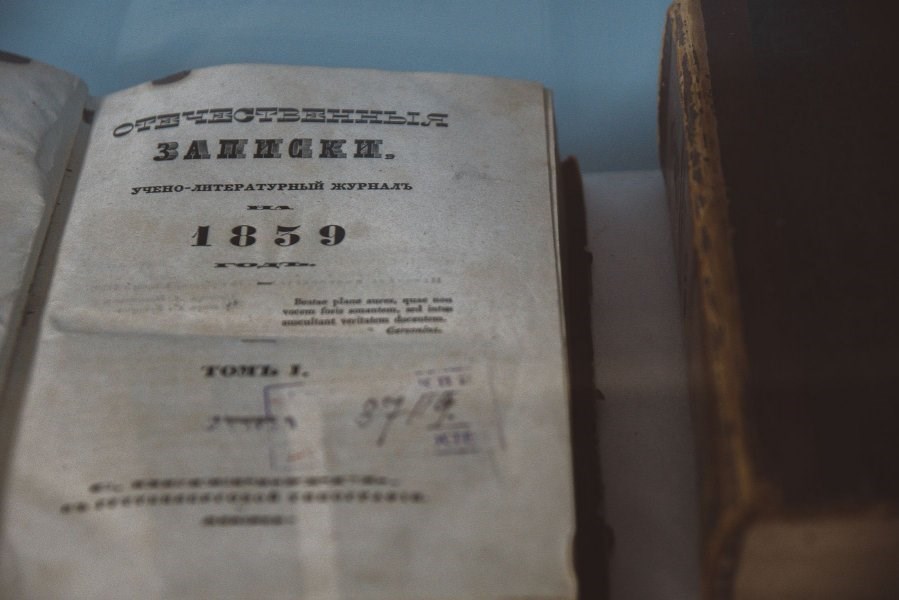 ОТЕЧЕСТВЕННЫЯ
ЗАПИСКИ,
УЧЕНО-ЛИТЕРАТУРНЫЙ ЖУРНАЛЪ
НА
1839
ГОДЪ.
Beatae plane aures, quae non
vocem foris sonantem, sed intus
auscultant veritatem docentem.
Gersonius.
ТОМЪ I.